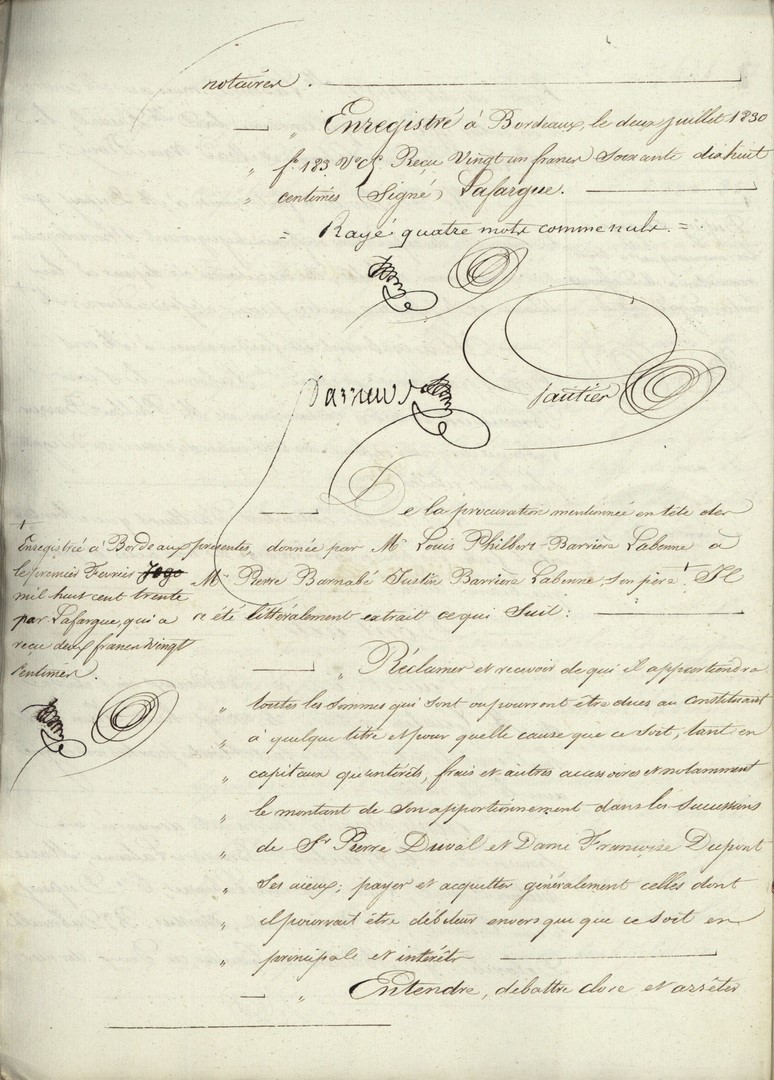 notaires.
„ Enregistré à Bordeaux, le deux juillet 1830
„ fo. 183 Vo. Reçu Vingt un francs Soixante dix huit
„ centimes (Signé) Lafargue.
= Rayé quatre mots comme nuls. =
Darrieux
Gautier
De la procuration mentionnée en tête des
présentes, donnée par Mr. Louis Philbert Barrière Labenne à
Mr. Pierre Barnabé Justin Barrière Labenne son père + Il
a été littéralement extrait ce qui Suit :
+
Enregistrée à Bordeaux
le premier Fevrier
mil huit cent trente
par Lafargue, qui a
reçu deux francs Vingt
Centimes.
„ Réclamer et recevoir de qui il appartiendra
„ toutes les sommes qui sont ou pourront être dues au constituant
„ à quelque titre et pour quelle cause que ce soit, tant en
„ capitaux qu'intérêts, frais et autres accessoires et notamment
„ le montant de son apportionnement dans les successions
„ de Sr. Pierre Duval et Dame Françoise Dupont
„ Ses aïeux; payer et acquitter généralement celles dont
„ il pourrait être débiteur envers qui que ce soit en
„ principal et intérêts
„ Entendre, débattre clore et arrêter